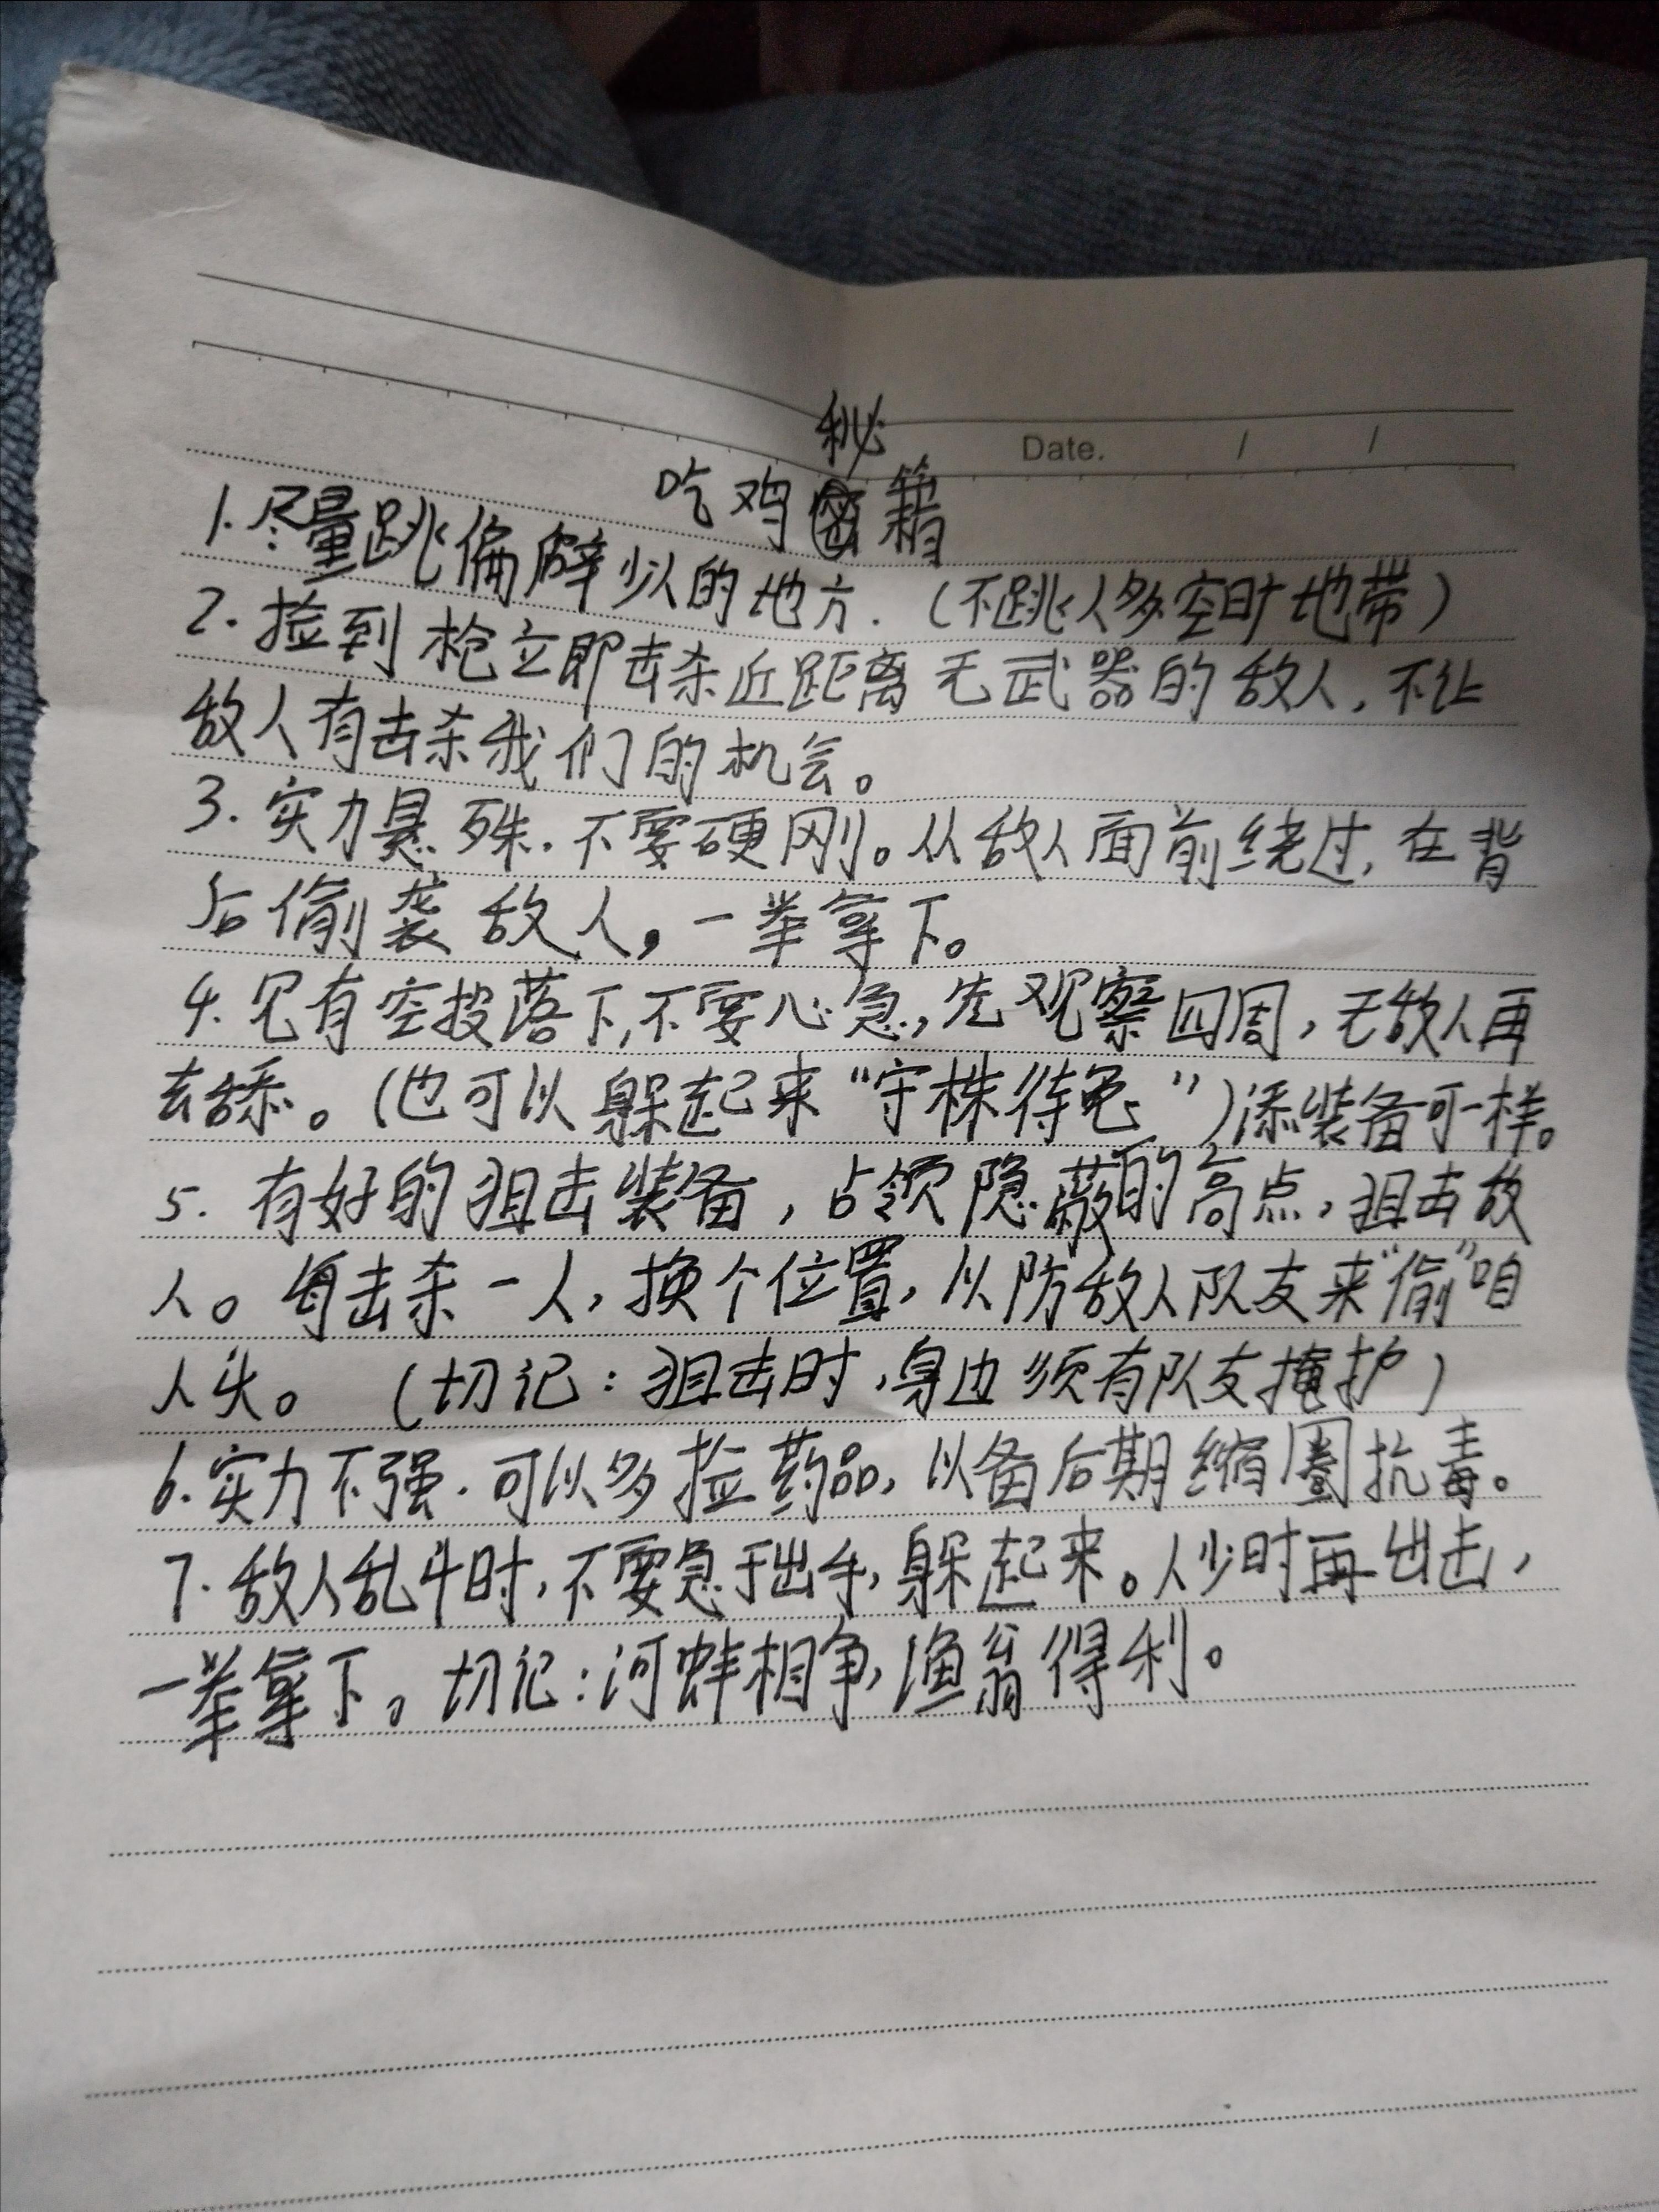 Date. / /
吃鸡秘籍
1.尽量跳偏僻少人的地方.(不跳人多空旷地带)
2.捡到枪立即击杀近距离无武器的敌人,不让
敌人有击杀我们的机会。
3.实力悬殊.不要硬刚。从敌人面前绕过,在背
后偷袭敌人,一举拿下。
4.见有空投落下,不要心急,先观察四周,无敌人再
去舔。(也可以躲起来“守株待兔”)添装备可一样。
5.有好的狙击装备,占领隐蔽的高点,狙击敌
人。每击杀一人,换个位置,以防敌人队友来“偷”咱
人头。(切记:狙击时,身边须有队友掩护)
6.实力不强.可以多捡药品,以备后期缩圈抗毒。
7.敌人乱斗时,不要急于出手,躲起来。人少时再出击,
一举拿下。切记:河蚌相争,渔翁得利。